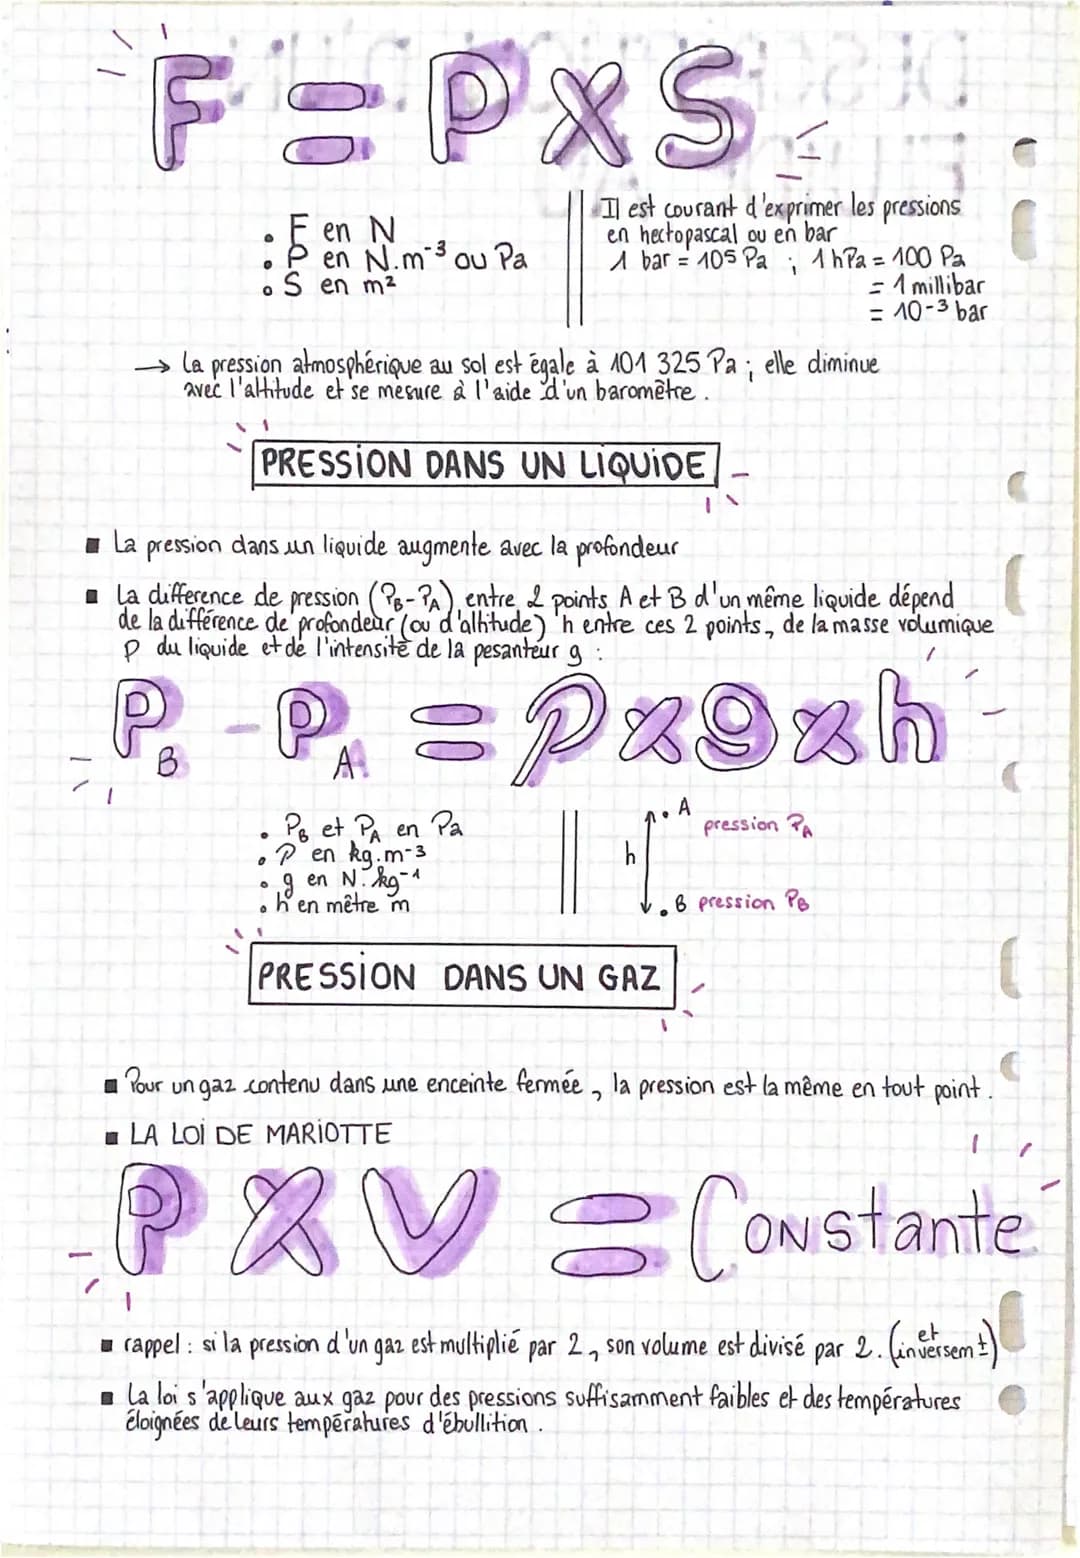 F = P x S
• F en N
• P en N.m⁻³ ou Pa
• S en m²
Il est courant d'exprimer les pressions
en hectopascal ou en bar
1 bar = 105 Pa ; 1 hPa = 100 Pa
= 1 millibar
= 10-3 bar
→ La pression atmosphérique au sol est égale à 101 325 Pa ; elle diminue
avec l'altitude et se mesure à l'aide d'un baromêtre.
PRESSION DANS UN LIQUIDE
▪ La pression dans un liquide augmente avec la profondeur
▪ La différence de pression (PB-PA) entre 2 points A et B d'un même liquide dépend
de la différence de profondeur (ou d'altitude) h entre ces 2 points, de la masse volumique
ρ du liquide et de l'intensité de la pesanteur g :
PB - PA = ρ x g x h
• PB et PA en Pa
• ρ en kg.m-3
• g en N.kg-1
• h en mêtre m
A
pression PA
h
B pression PB
PRESSION DANS UN GAZ
▪ Pour un gaz contenu dans une enceinte fermée, la pression est la même en tout point.
▪ LA LOI DE MARIOTTE
P X V = Constante
▪ rappel : si la pression d'un gaz est multiplié par 2, son volume est divisé par 2. (et inversem^t)
▪ La loi s'applique aux gaz pour des pressions suffisamment faibles et des températures
éloignées de leurs températures d'ébullition.